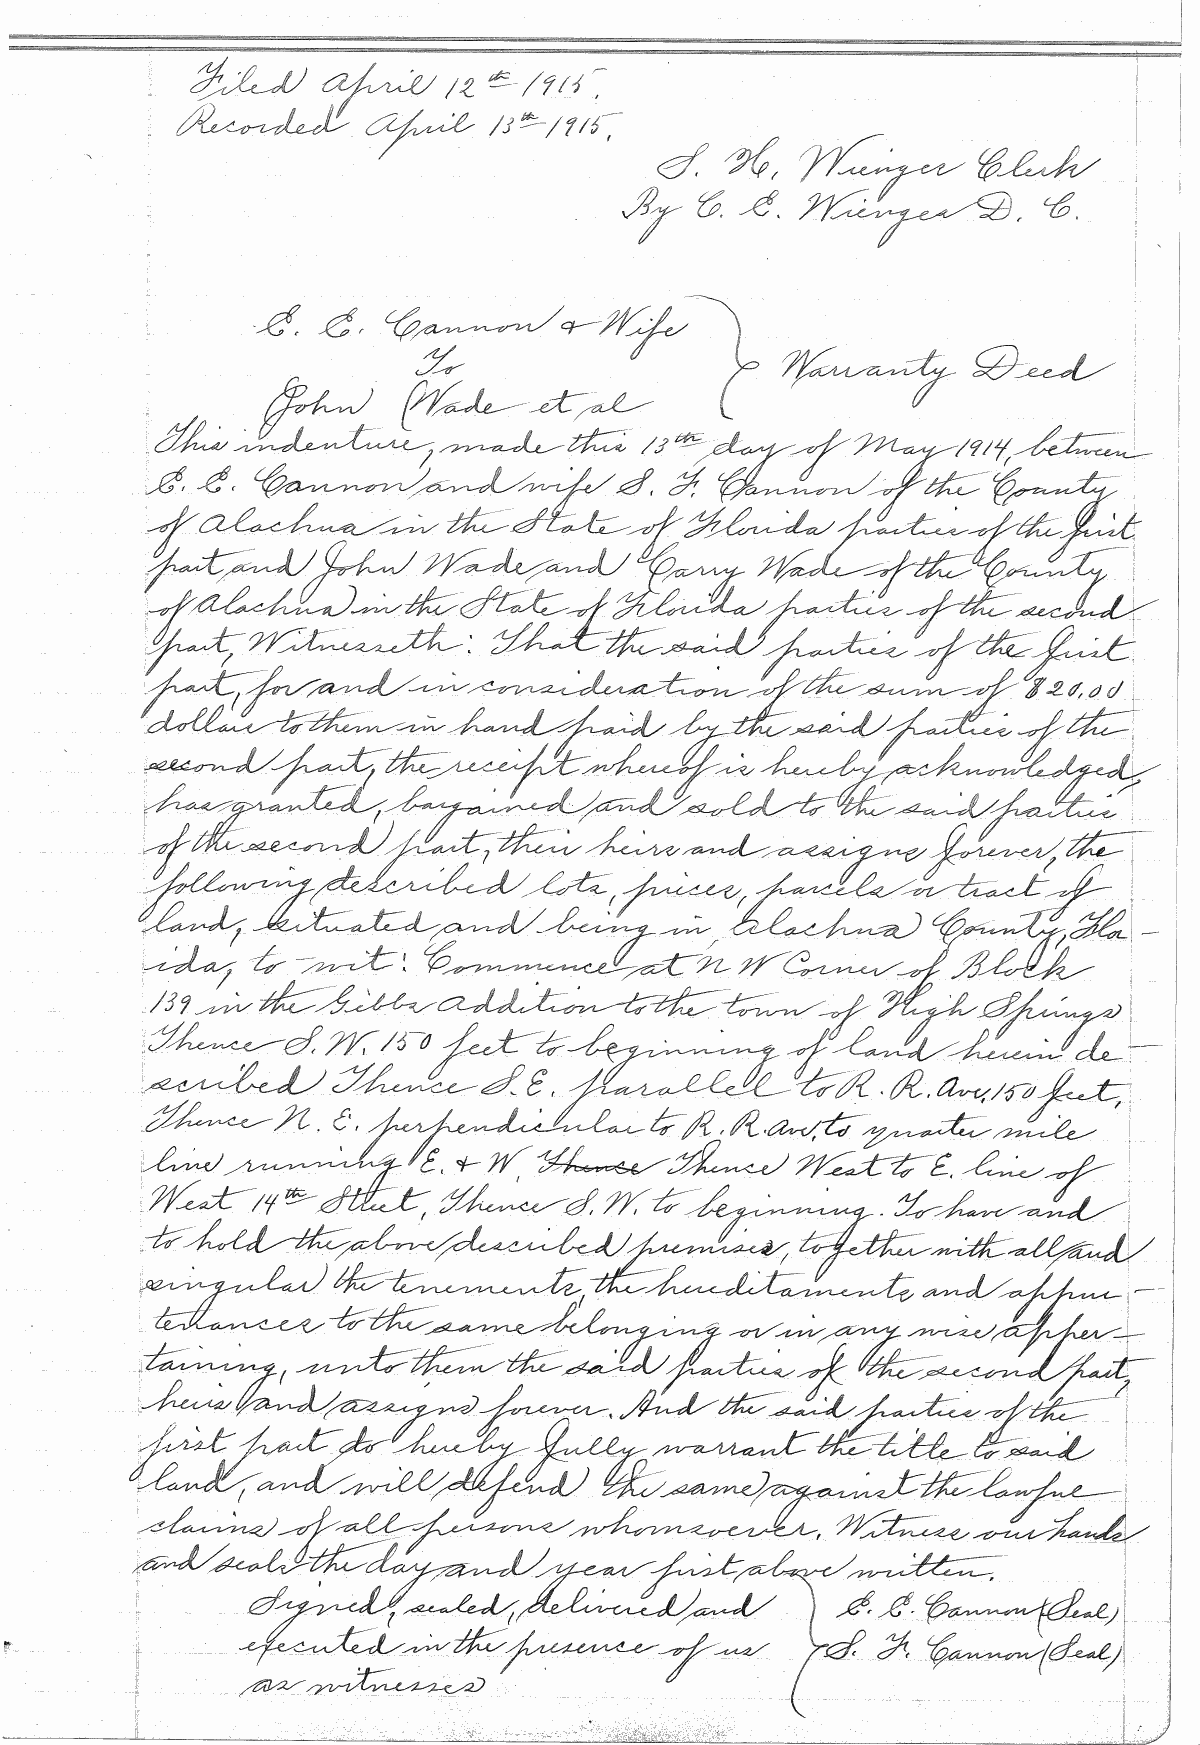 Filed April 12th 1915.
Recorded April 13th 1915.
S. H. Wienger Clerk
By C. E. Wienges D. C.
E. E. Cannon & Wife
To
Warranty Deed
John Wade et al
This indenture, made this 13th day of May 1914, between
E. E. Cannon and wife S. F. Cannon of the County
of Alachua in the State of Florida parties of the first
part and John Wade and Carry Wade of the County
of Alachua in the State of Florida parties of the second
part, Witnesseth: That the said parties of the first
part, for and in consideration of the sum of $20.00
dollars to them in hand paid by the said parties of the
second part, the receipt whereof is hereby acknowledged,
has granted, bargained and sold to the said parties
of the second part, their heirs and assigns forever, the
following described lots, pieces, parcels or tract of
land, situated and being in Alachua County, Flo-
ida, to-wit: Commence at N W Corner of Block
139 in the Gibbs Addition to the town of High Springs
Thence S. W. 150 feet to beginning of land herein de-
scribed Thence S. E. parallel to R. R. Ave, 150 feet,
Thence N. E. perpendicular to R. R. Ave, to quarter mile
line running E. & W. Thence Thence West to E. line of
West 14th Street, Thence S. W. to beginning. To have and
to hold the above described premises, together with all and
singular the tenements, the hereditaments and appur-
tenances to the same belonging or in any wise apper-
taining, unto them the said parties of the second part,
heirs and assigns forever. And the said parties of the
first part do hereby fully warrant the title to said
land, and will defend the same against the lawful
claims of all persons whomsoever. Witness our hands
and seals the day and year first above written.
Signed, sealed, delivered and E. E. Cannon (Seal)
executed in the presence of us S. F. Cannon (Seal)
as witnesses